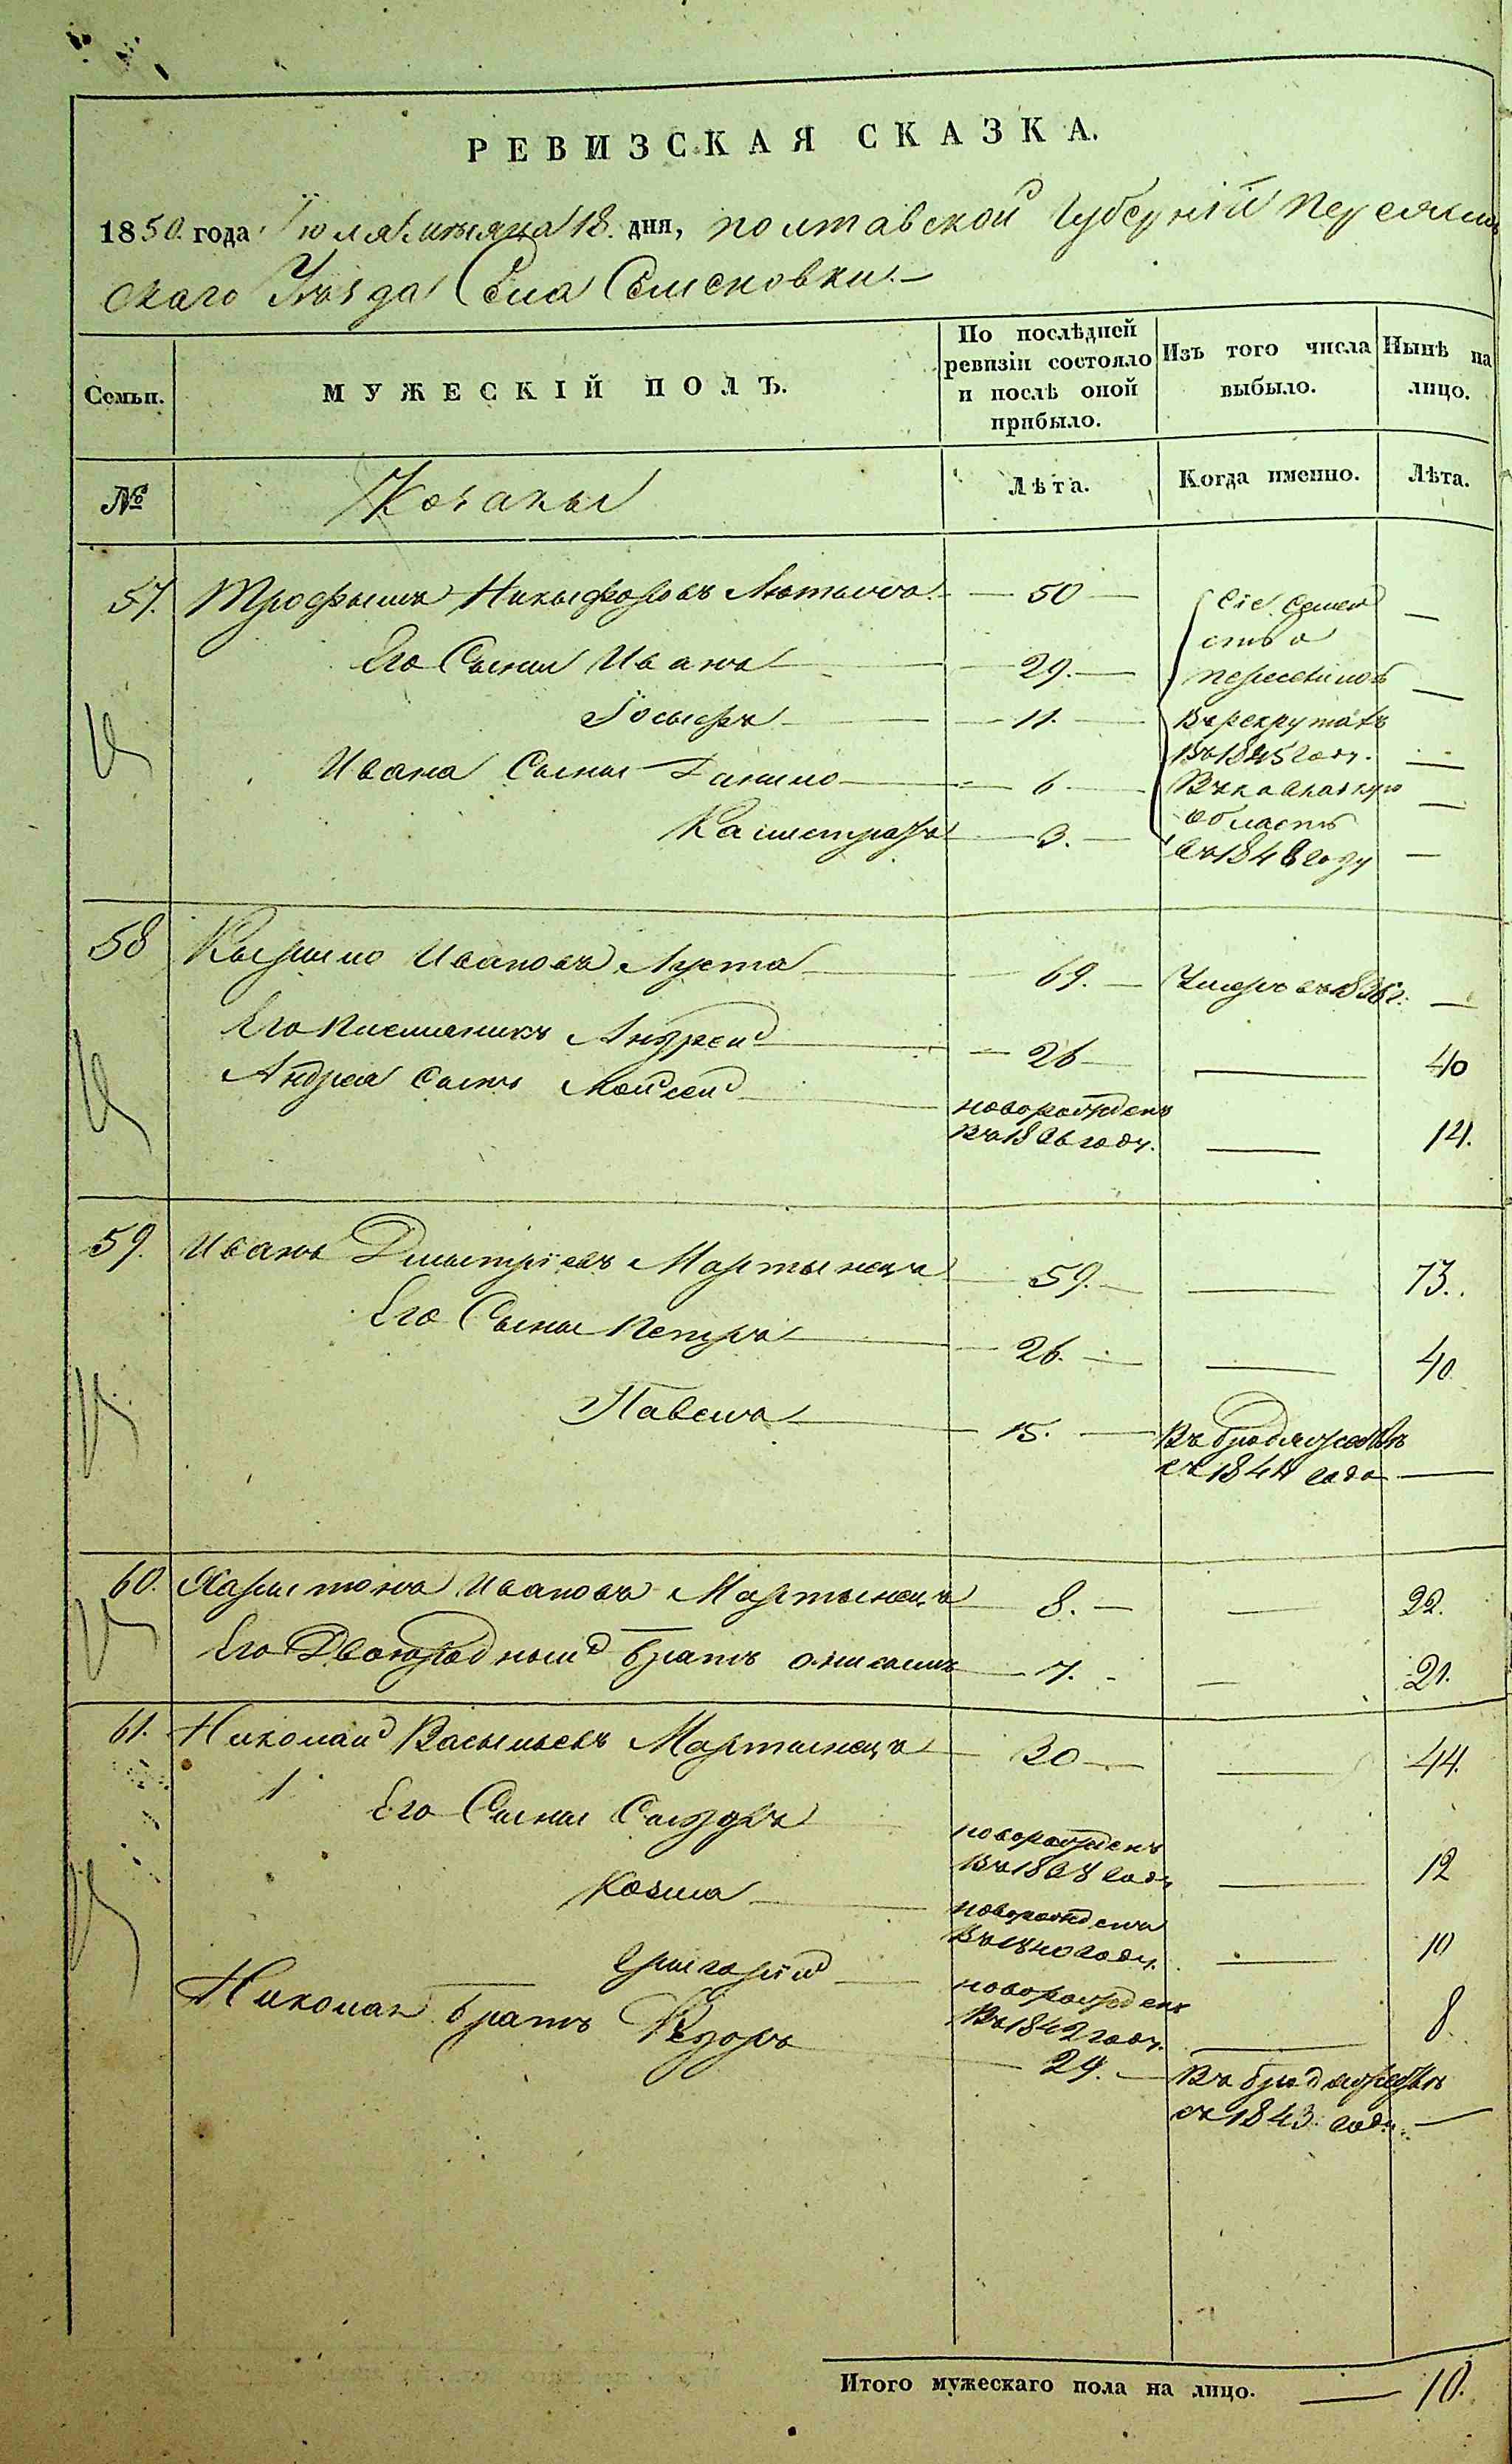 РЕВИЗСКАЯ СКАЗКА.
1850. года Іюля мѣсяца 18. дня, Полтавской Губерніи Переяслав
скаго Уѣзда Села Семеновки.
Семьи.
МУЖЕСКІЙ ПОЛЪ.
По послѣдней
ревизіи состояло
и послѣ оной
прибыло.
Изъ того числа
выбыло.
Нынѣ на
лицо.
№
Козаки
Лѣта.
Когда именно.
Лѣта.
57. Трофымъ Никыфоровъ — 50 —
Его Сыны Иванъ — 29. —
Іосыфъ — 11. —
Ивана Сыны Данило — 6 —
Калистратъ — 3. —
Сіе Семей
ство
переселилось
въ 1845 году.
область
въ 1848 году
58 Кырило Ивановъ Луста — 69. — Умеръ въ г. —
Его племянникъ Андрей — 26 — — 40
Андрея сынъ Мойсей — новорожденъ
въ 1836 году. — 14.
59. Иванъ Дмытріевъ Мартынецъ — 59. — — 73.
Его Сыны Петръ — 26. — — 40
Павелъ — 15. — Въ бродяжествѣ
съ 1844 года —
60. Харитонъ Ивановъ Мартынецъ — 8. — — 22.
Его Двоюродный братъ — 7. — — 21.
61. Николай Васыльевъ Мартынецъ — 30 — — 44.
1
Его Сыны Сыдоръ — новорожденъ
въ 1838 году — 12
Козма — новорожденъ
въ 1840 году. — 10
Григорій — новорожденъ
въ 1842 году. — 8.
Николая братъ Федоръ — 29. — Въ бродяжествѣ
съ 1843 года. —
Итого мужескаго пола на лицо. — 10.